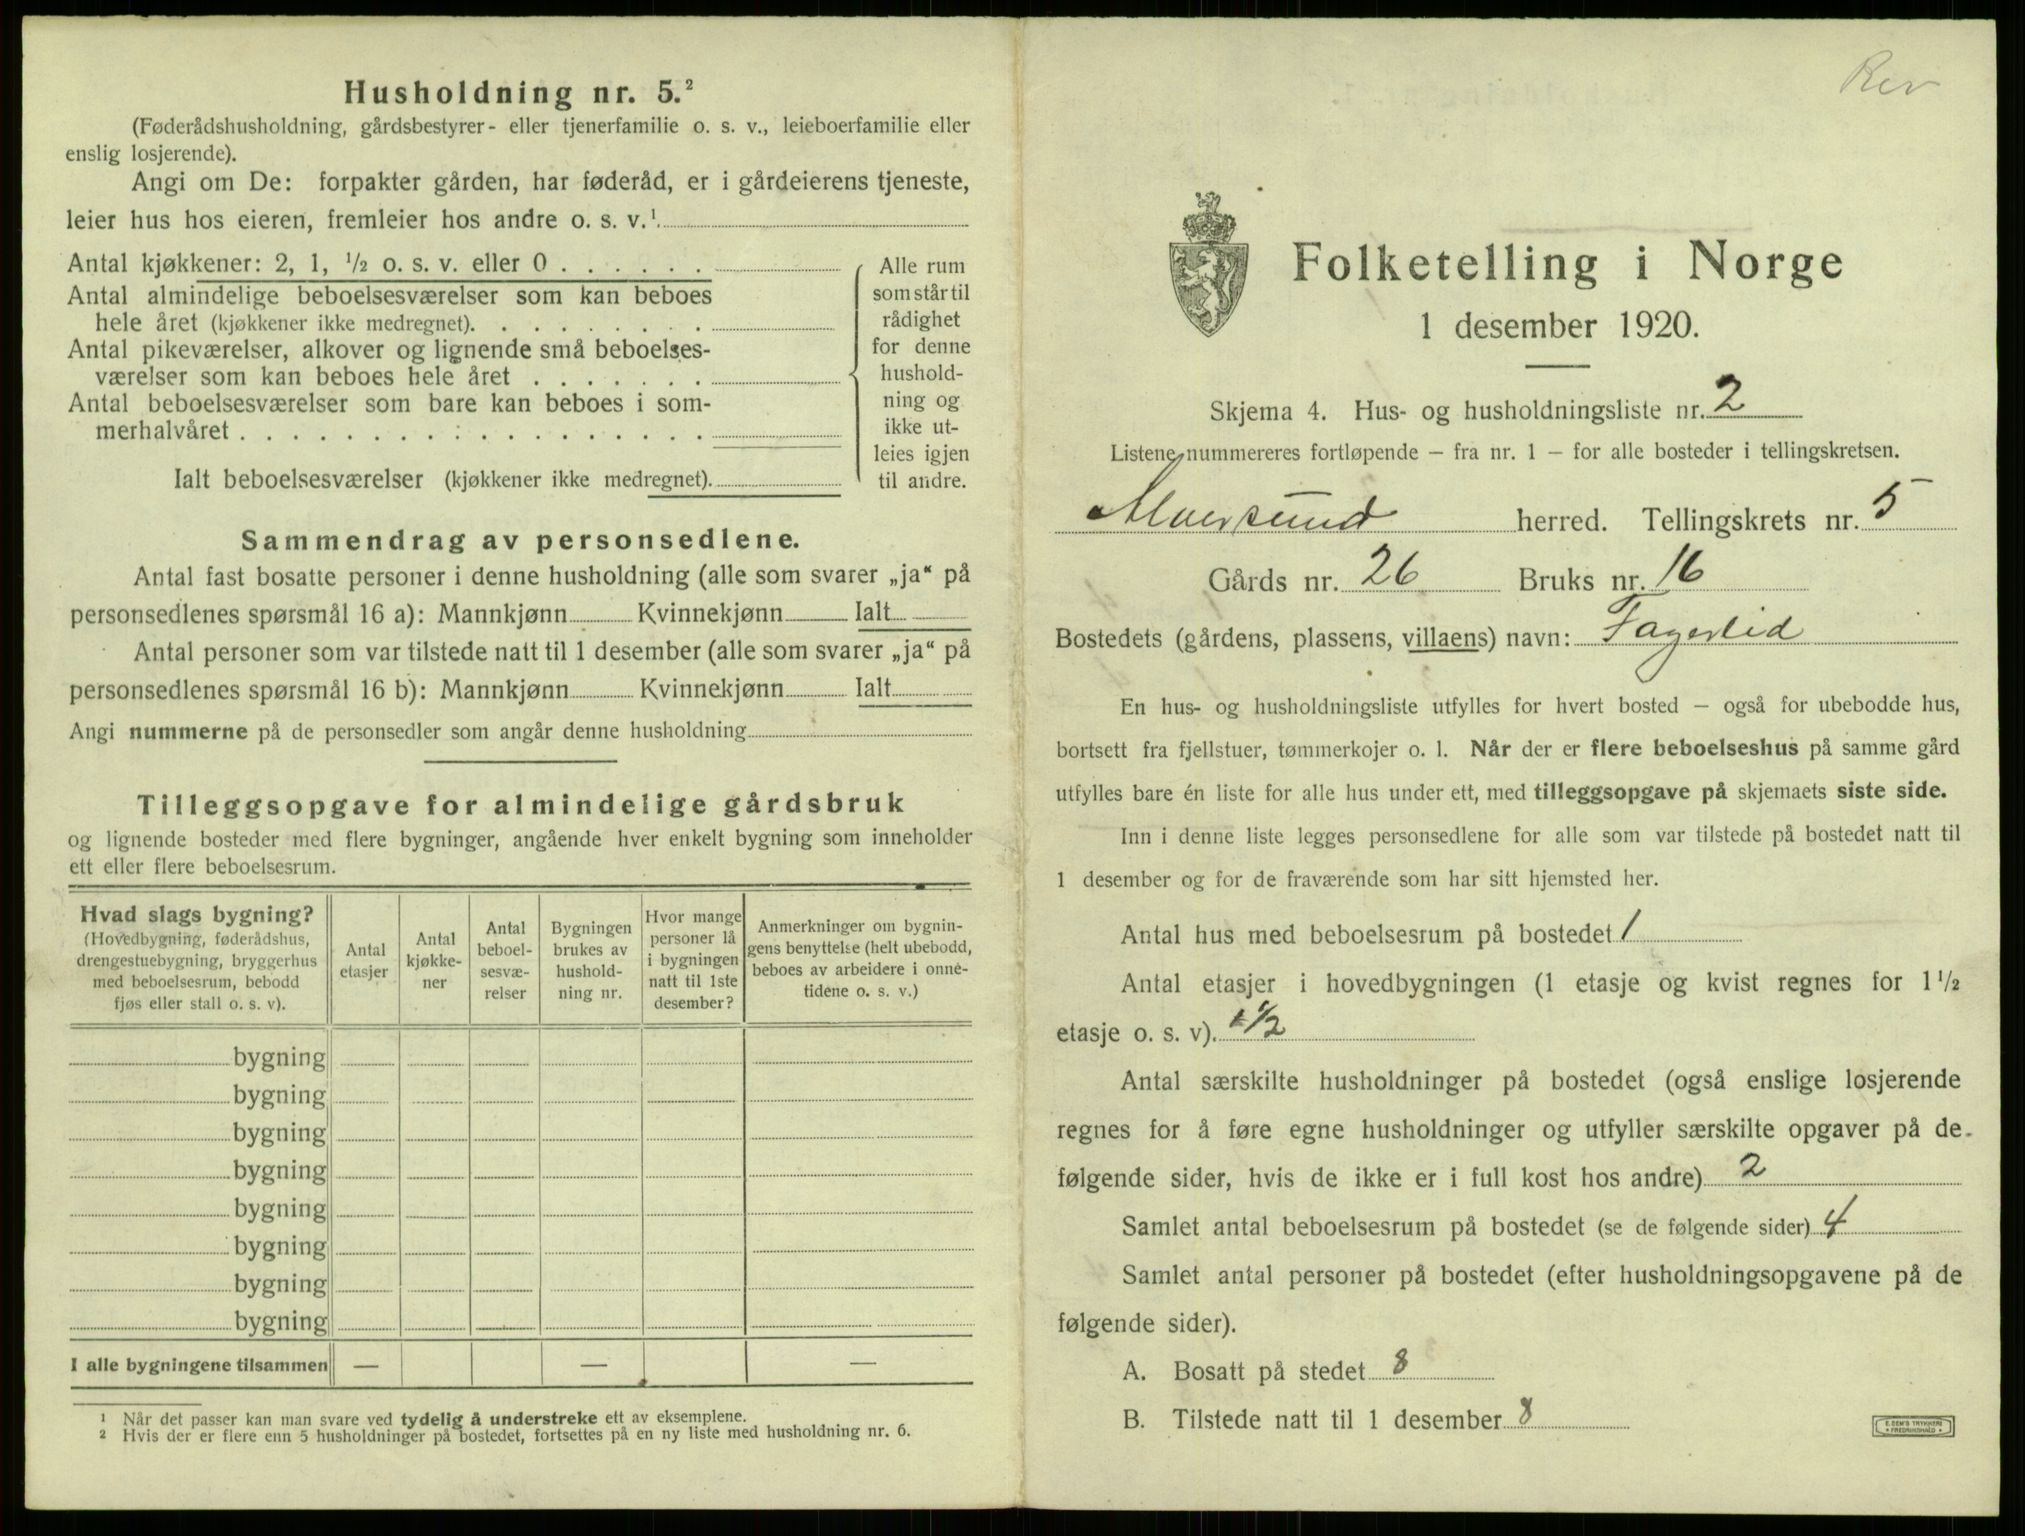 Husholdning nr. 5.²
(Føderådshusholdning, gårdsbestyrer- eller tjenerfamilie o. s. v., leieboerfamilie eller
enslig losjerende).
Angi om De: forpakter gården, har føderåd, er i gårdeierens tjeneste,
leier hus hos eieren, fremleier hos andre o. s. v.¹
Antal kjøkkener: 2, 1, ½ o. s. v. eller 0
Antal almindelige beboelsesværelser som kan beboes
hele året (kjøkkener ikke medregnet).
Antal pikeværelser, alkover og lignende små beboelses-
værelser som kan beboes hele året
Antal beboelsesværelser som bare kan beboes i som-
merhalvåret
Ialt beboelsesværelser (kjøkkener ikke medregnet).
Alle rum
som står til
rådighet
for denne
hushold-
ning og
ikke ut-
leies igjen
til andre.
Sammendrag av personsedlene.
Antal fast bosatte personer i denne husholdning (alle som svarer „ja“ på
personsedlenes spørsmål 16 a): Mannkjønn Kvinnekjønn Ialt
Antal personer som var tilstede natt til 1 desember (alle som svarer „ja“ på
personsedlenes spørsmål 16 b): Mannkjønn Kvinnekjønn Ialt
Angi nummerne på de personsedler som angår denne husholdning
Tilleggsopgave for almindelige gårdsbruk
og lignende bosteder med flere bygninger, angående hver enkelt bygning som inneholder
ett eller flere beboelsesrum.
Hvad slags bygning?
(Hovedbygning, føderådshus,
drengestuebygning, bryggerhus
med beboelsesrum, bebodd
fjøs eller stall o. s. v).
Antal
etasjer
Antal
kjøkke-
ner
Antal
beboel-
sesvæ-
relser
Bygningen
brukes av
hushold-
ning nr.
Hvor mange
personer lå
i bygningen
natt til 1ste
desember?
Anmerkninger om bygnin-
gens benyttelse (helt ubebodd,
beboes av arbeidere i onne-
tidene o. s. v.)
bygning
bygning
bygning
bygning
bygning
bygning
bygning
bygning
I alle bygningene tilsammen — — —
¹ Når det passer kan man svare ved tydelig å understreke ett av eksemplene.
² Hvis der er flere enn 5 husholdninger på bostedet, fortsettes på en ny liste med husholdning nr. 6.
Rev
Folketelling i Norge
1 desember 1920.
Skjema 4. Hus- og husholdningsliste nr. 2
Listene nummereres fortløpende – fra nr. 1 – for alle bosteder i tellingskretsen.
Alversund herred. Tellingskrets nr. 5
Gårds nr. 26 Bruks nr. 16
Bostedets (gårdens, plassens, villaens) navn: Fagerlid
En hus- og husholdningsliste utfylles for hvert bosted – også for ubebodde hus,
bortsett fra fjellstuer, tømmerkojer o. l. Når der er flere beboelseshus på samme gård
utfylles bare én liste for alle hus under ett, med tilleggsopgave på skjemaets siste side.
Inn i denne liste legges personsedlene for alle som var tilstede på bostedet natt til
1 desember og for de fraværende som har sitt hjemsted her.
Antal hus med beboelsesrum på bostedet 1
Antal etasjer i hovedbygningen (1 etasje og kvist regnes for 1½
etasje o. s. v). 1½
Antal særskilte husholdninger på bostedet (også enslige losjerende
regnes for å føre egne husholdninger og utfyller særskilte opgaver på de
følgende sider, hvis de ikke er i full kost hos andre) 2
Samlet antal beboelsesrum på bostedet (se de følgende sider) 4
Samlet antal personer på bostedet (efter husholdningsopgavene på de
følgende sider).
A. Bosatt på stedet 8
B. Tilstede natt til 1 desember 8
E. SEM'S TRYKKERI
FREDRIKSHALD